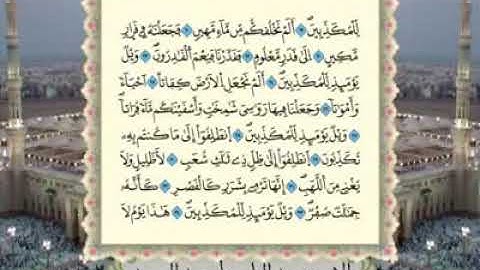 لِّلْمُكَذِّبِينَ ۝ أَلَمْ نَخْلُقكُّم مِّن مَّآءٍ مَّهِينٍ ۝ فَجَعَلْنَٰهُ فِى قَرَارٍ
مَّكِينٍ ۝ إِلَىٰ قَدَرٍ مَّعْلُومٍ ۝ فَقَدَرْنَا فَنِعْمَ ٱلْقَٰدِرُونَ ۝ وَيْلٌ
يَوْمَئِذٍ لِّلْمُكَذِّبِينَ ۝ أَلَمْ نَجْعَلِ ٱلْأَرْضَ كِفَاتًا ۝ أَحْيَآءً
وَأَمْوَٰتًا ۝ وَجَعَلْنَا فِيهَا رَوَٰسِىَ شَٰمِخَٰتٍ وَأَسْقَيْنَٰكُم مَّآءً فُرَاتًا
۝ وَيْلٌ يَوْمَئِذٍ لِّلْمُكَذِّبِينَ ۝ ٱنطَلِقُوٓا۟ إِلَىٰ مَا كُنتُم بِهِۦ
تُكَذِّبُونَ ۝ ٱنطَلِقُوٓا۟ إِلَىٰ ظِلٍّ ذِى ثَلَٰثِ شُعَبٍ ۝ لَّا ظَلِيلٍ وَلَا
يُغْنِى مِنَ ٱللَّهَبِ ۝ إِنَّهَا تَرْمِى بِشَرَرٍ كَٱلْقَصْرِ ۝ كَأَنَّهُۥ
جِمَٰلَتٌ صُفْرٌ ۝ وَيْلٌ يَوْمَئِذٍ لِّلْمُكَذِّبِينَ ۝ هَٰذَا يَوْمُ لَا